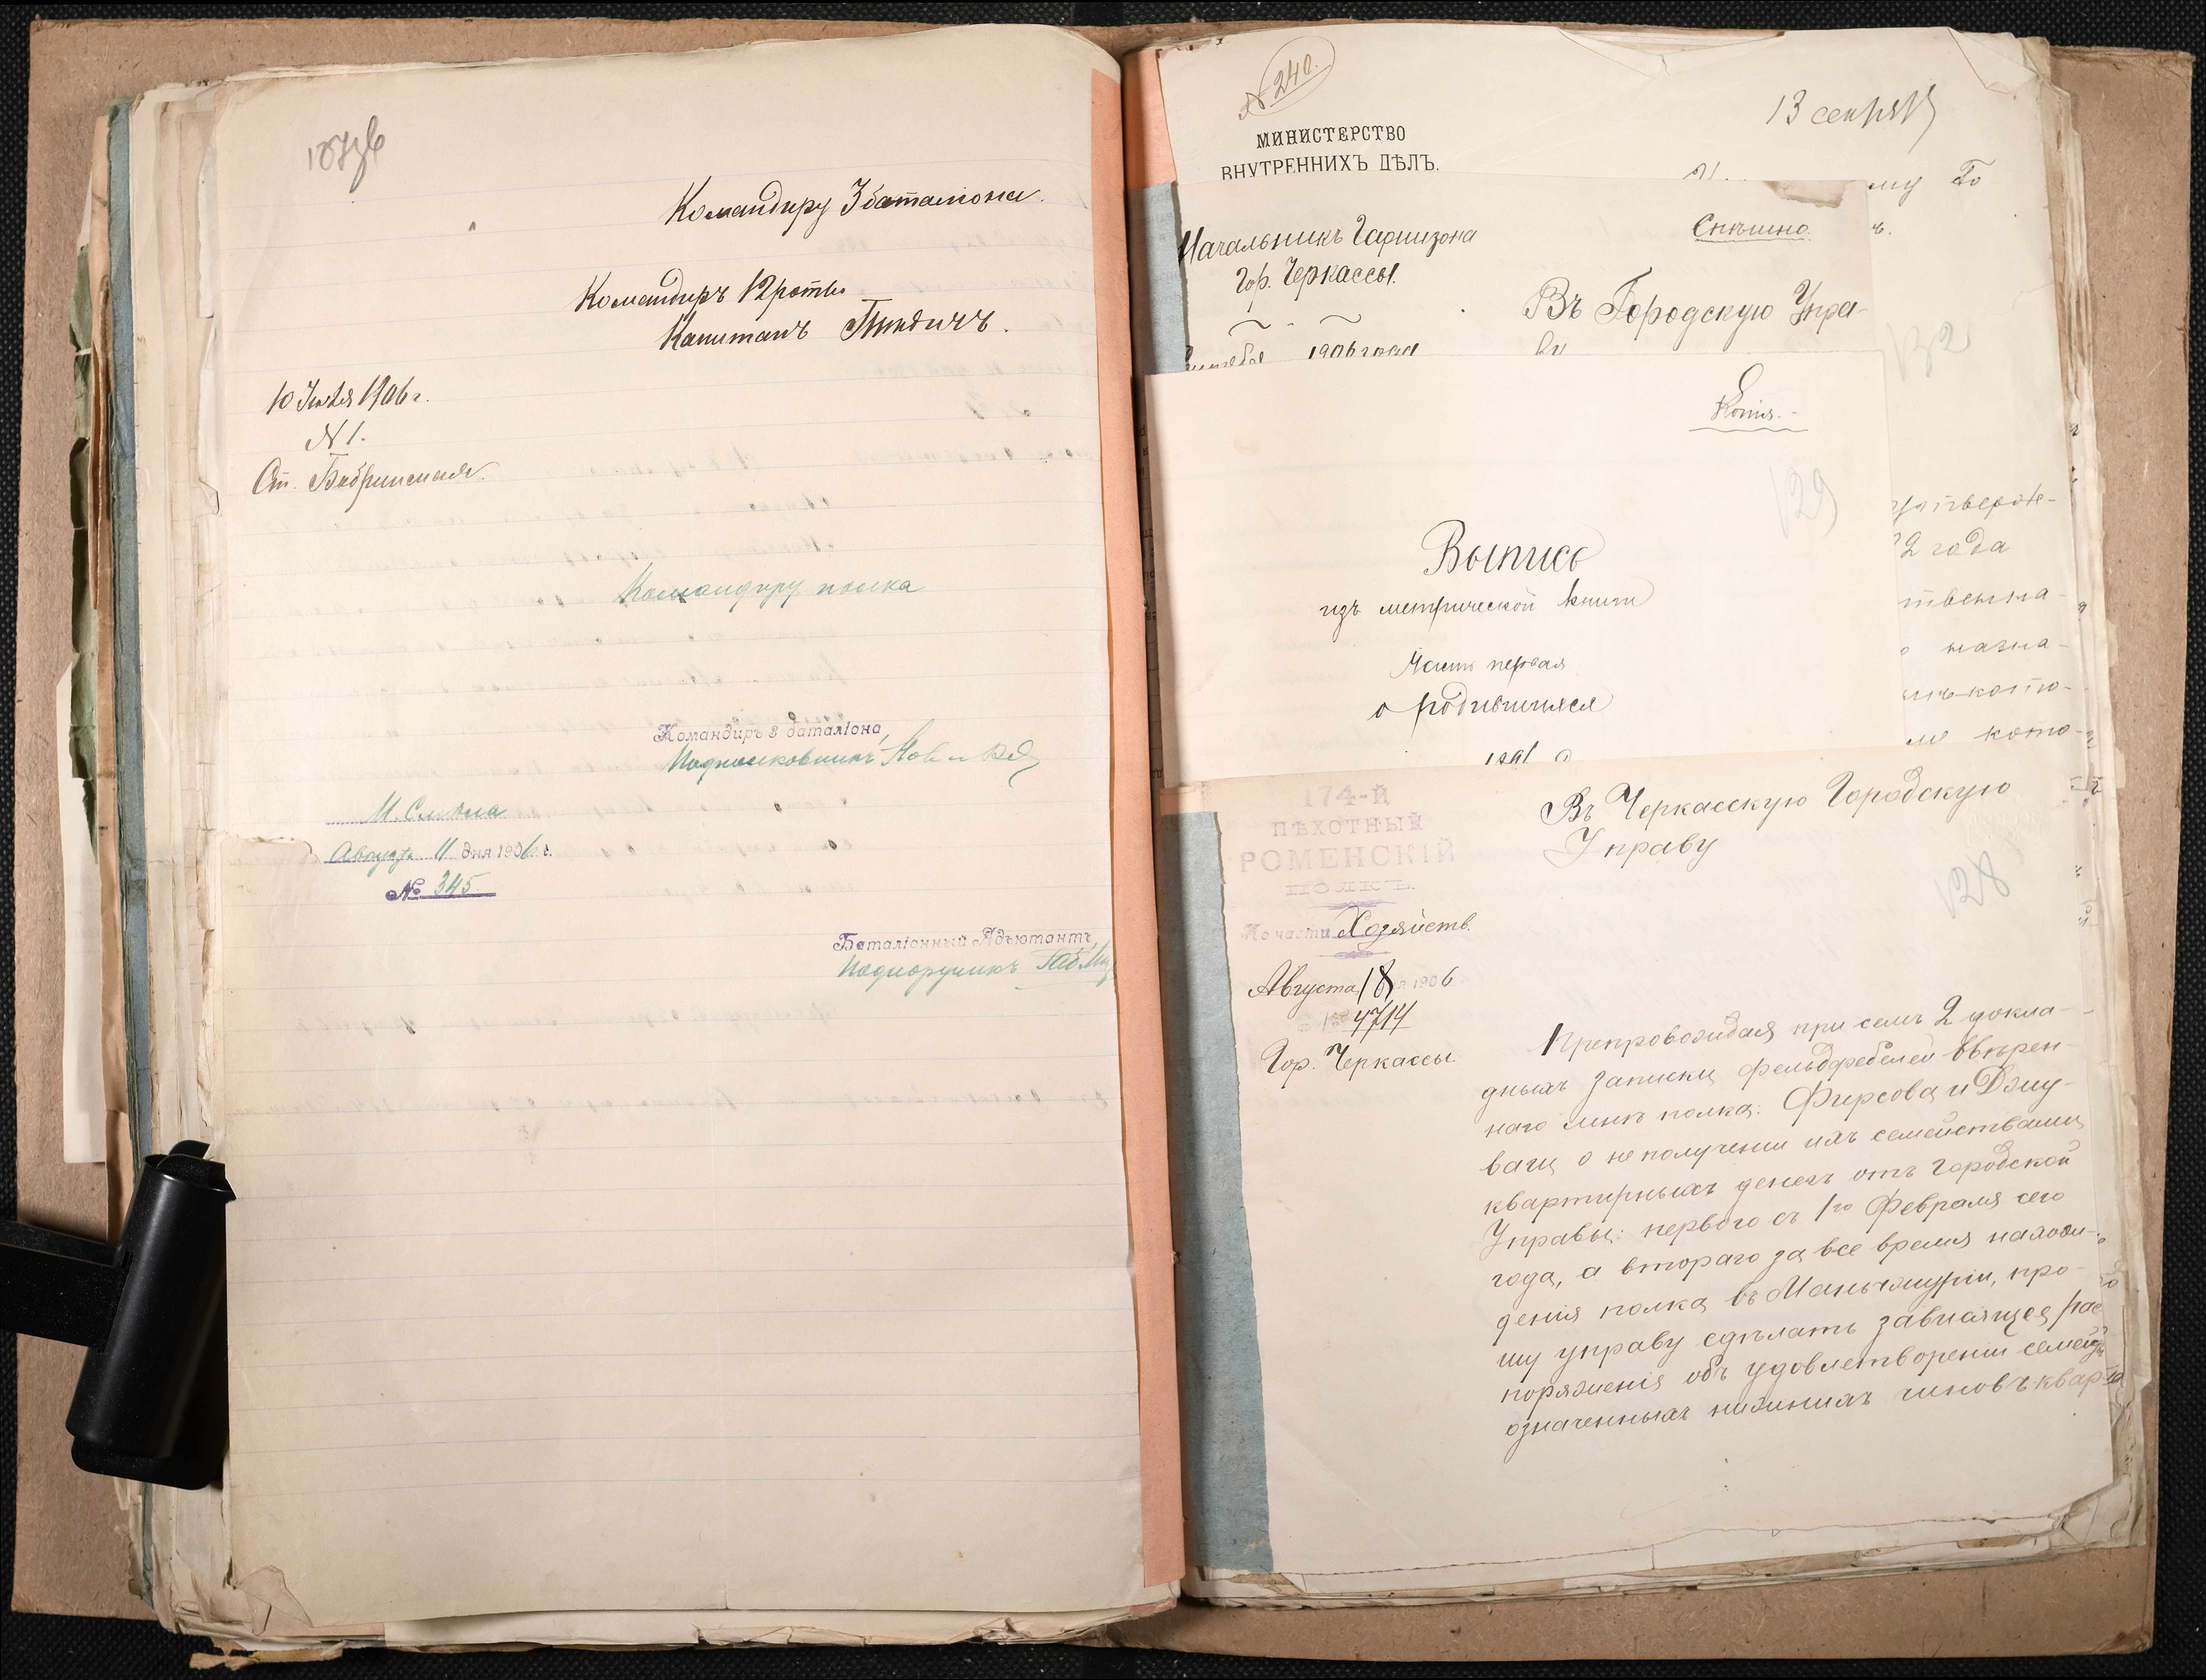 Командиру 3 баталіона.
Командиръ 12 роты
Капитанъ
10 Іюля 1906 г.
N 1.
Ст. Бобринская.
Командиру полка
Командиръ 3 баталіона,
Подполковникъ
М. Смѣла
Августа 11 дня 1906 г.
№ 345.
Баталіонный Адъютантъ,
Подпоручикъ
N 240.
13 сентября
МИНИСТЕРСТВО
ВНУТРЕННИХЪ ДѢЛЪ.
ому Го
Спѣшно.
ъ.
Начальникъ Гарнизона
Гор. Черкассы.
Въ Городскую Упра-
1906 года
132
Копія.
129
утвержде-
2 года
твенна-
о назна-
кото-
Выпись
изъ метрической книги
Часть первая
о родившихся
1891
174-й
ПѢХОТНЫЙ
РОМЕНСКІЙ
ПОЛКЪ.
По части Хозяйств.
Августа 18 дня 1906
№ 4714
Гор. Черкассы.
Въ Черкасскую Городскую
Управу
128
Препровождая при семъ 2 докла-
дныхъ записки фельдфебелей ввѣрен-
наго мнѣ полка: Фирсова и Джу-
ваги о неполученіи ихъ семействами
квартирныхъ денегъ отъ городской
Управы: перваго съ 1го Февраля сего
года, а втораго за все время нахож-
денія полка въ Маньчжуріи, про-
шу управу сдѣлать зависящее рас
поряженіе объ удовлетвореніи семей
означенныхъ нижнихъ чиновъ квар-